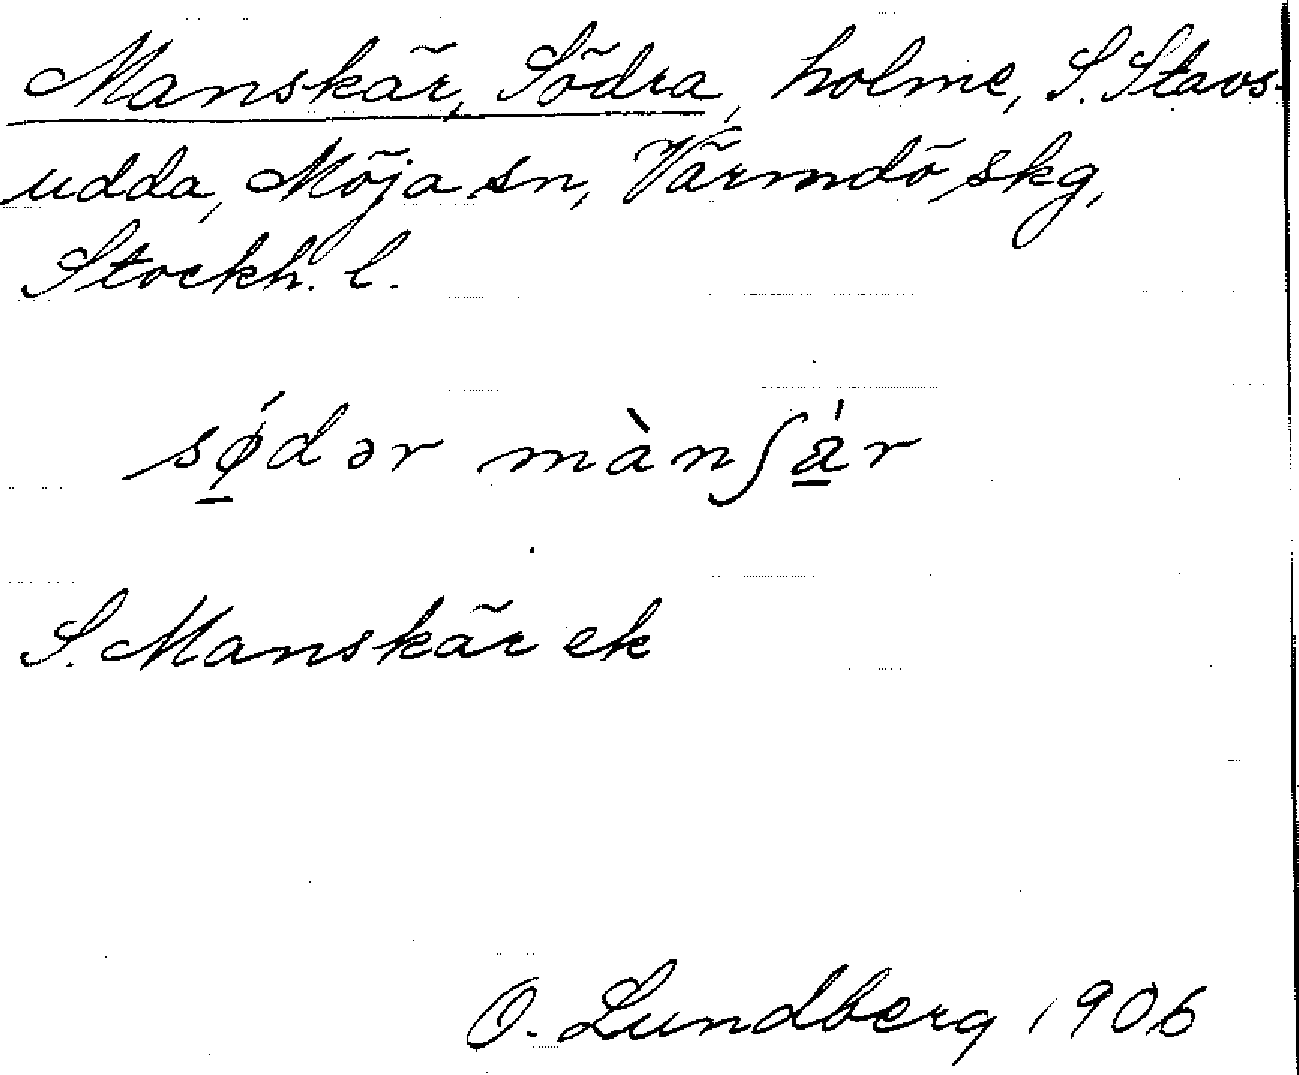 Manskär, Södra, holme, S. Stavs-
udda, Möja sn, Värmdö skg,
Stockh. l.
sǿ̱dər mànʃá̱r
S. Manskär ek
O. Lundberg 1906